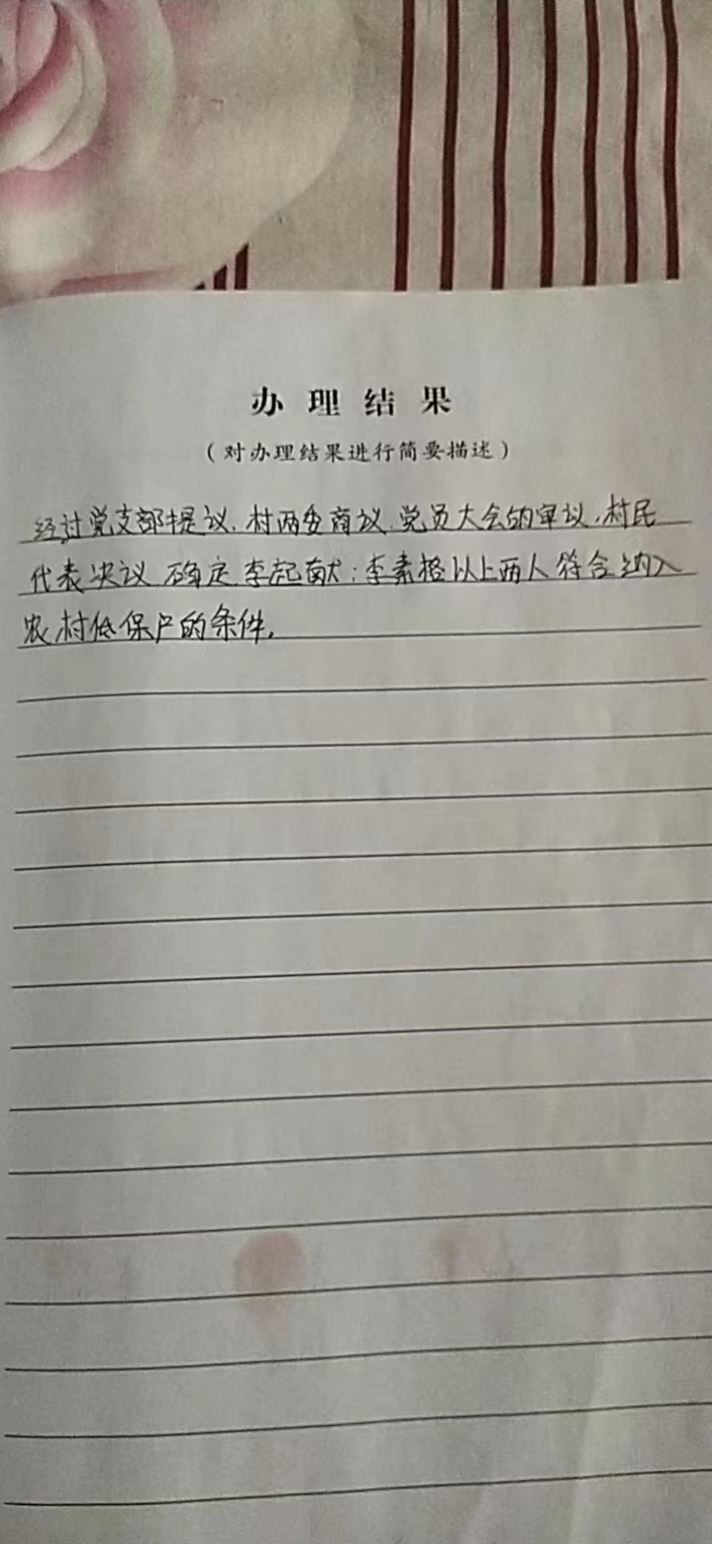 办理结果
（对办理结果进行简要描述）
经过党支部提议、村两委商议、党员大会的审议，村民
代表决议 确定李起献；李素格以上两人符合纳入
农村低保户的条件。